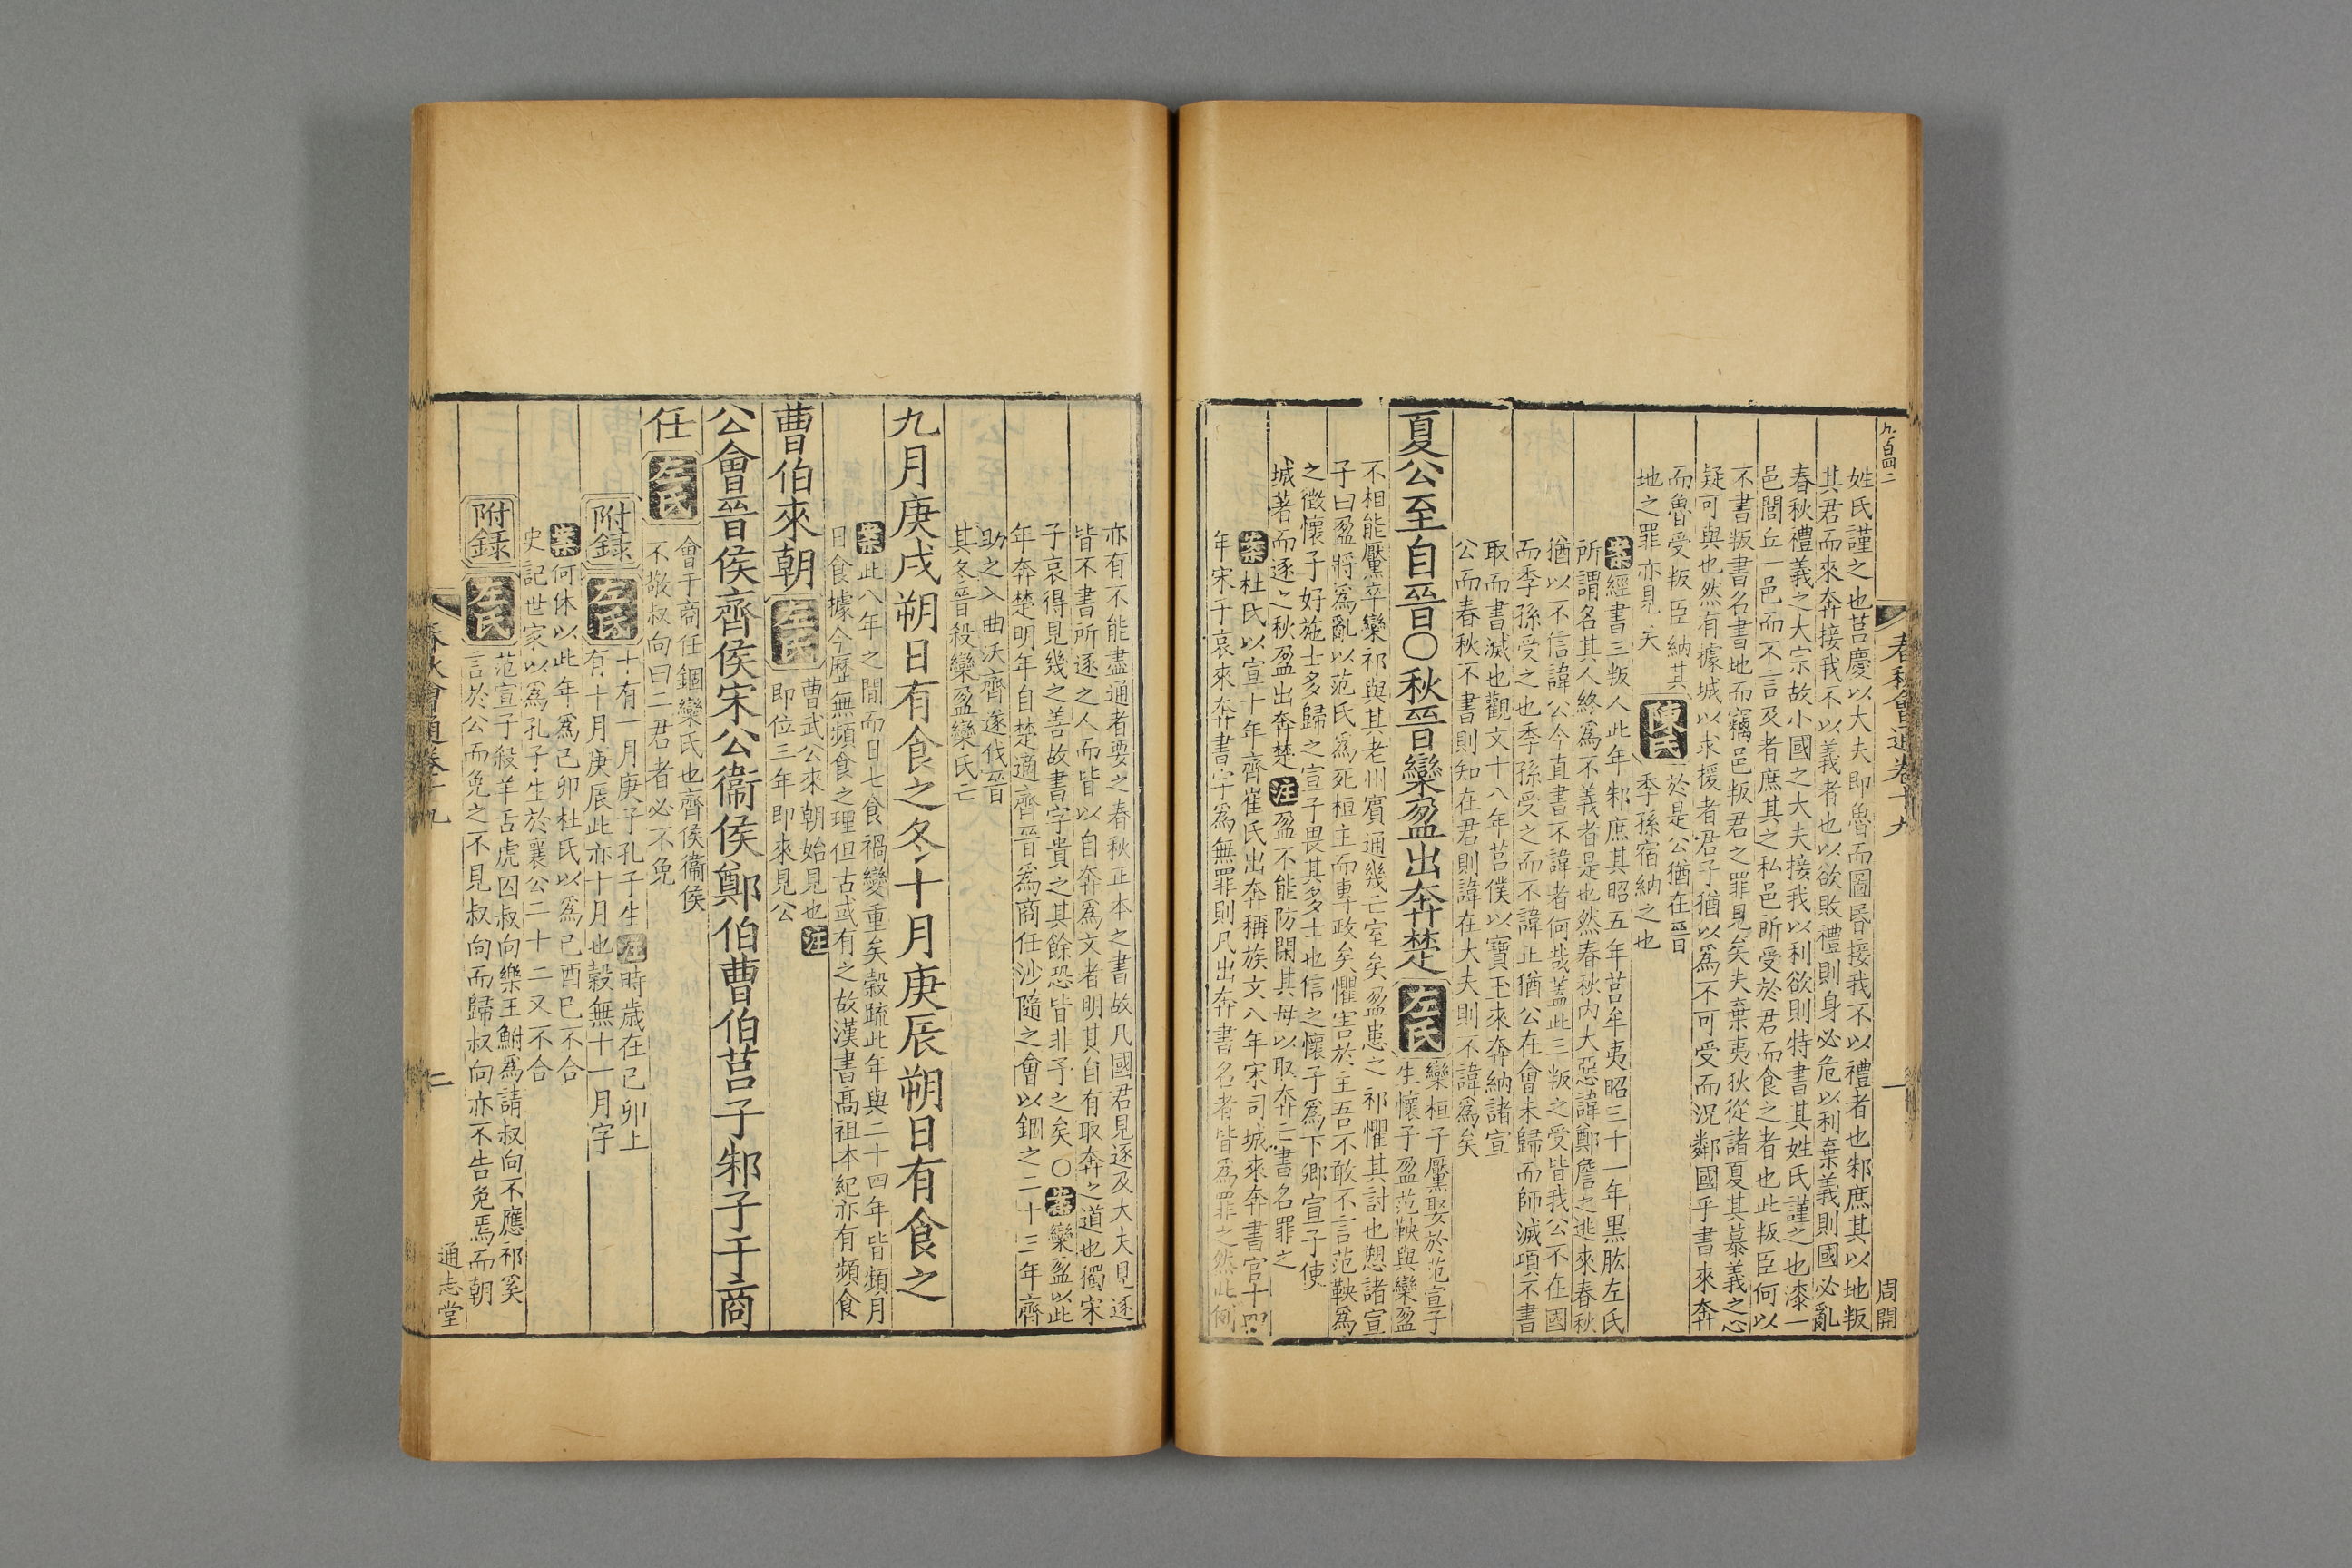 九百四二
春秋會通卷十九
一
周開
姓氏謹之也莒慶以大夫即魯而圖昏接我不以禮者也邾庶其以地叛
其君而來奔接我不以義者也以欲敗禮則身必危以利棄義則國必亂
春秋禮義之大宗故小國之大夫接我以利欲則特書其姓氏謹之也漆一
邑閭丘一邑而不言及者庶其之私邑所受於君而食之者也此叛臣何以
不書叛書名書地而竊邑叛君之罪見矣夫棄夷狄從諸夏其慕義之心
疑可與也然有據城以求援者君子猶以為不可受而況鄰國乎書來奔
而魯受叛臣納其
地之罪亦見矣
陳氏
於是公猶在晉
季孫宿納之也
案經書三叛人此年邾庶其昭五年莒牟夷昭三十一年黑肱左氏
所謂名其人終為不義者是也然春秋內大惡諱鄭詹之逃來春秋
猶以不信諱公今直書不諱者何哉蓋此三叛之受皆我公不在國
而季孫受之也季孫受之而不諱正猶公在會未歸而師滅項不書
取而書滅也觀文十八年莒僕以寶玉來奔納諸宣
公而春秋不書則知在君則諱在大夫則不諱為矣
夏公至自晉〇秋晉欒盈出奔楚
左氏
欒桓子黶娶於范宣子
生懷子盈范鞅與欒盈
不相能黶卒欒祁與其老州賓通幾亡室矣盈患之祁懼其討也愬諸宣
子曰盈將為亂以范氏為死桓主而專政矣懼害於主吾不敢不言范鞅為
之徵懷子好施士多歸之宣子畏其多士也信之懷子為下卿宣子使
城著而逐之秋盈出奔楚注盈不能防閑其母以取奔亡書名罪之
案杜氏以宣十年齊崔氏出奔稱族文八年宋司城來奔書官十四
年宋子哀來奔書字為無罪則凡出奔書名者皆為罪之然此例
亦有不能盡通者要之春秋正本之書故凡國君見逐及大夫見逐
皆不書所逐之人而皆以自奔為文者明其自有取奔之道也獨宋
子哀得見幾之善故書字貴之其餘恐皆非予之矣〇案欒盈以此
年奔楚明年自楚適齊晉為商任沙隨之會以錮之二十三年齊
助之入曲沃齊遂伐晉
其冬晉殺欒盈欒氏亡
九月庚戌朔日有食之冬十月庚辰朔日有食之
案此八年之間而日七食禍變重矣穀疏此年與二十四年皆頻月
日食據今歷無頻食之理但古或有之故漢書高祖本紀亦有頻食
曹伯來朝
左氏
曹武公來朝始見也注
即位三年即來見公
公會晉侯齊侯宋公衞侯鄭伯曹伯莒子邾子于商
任
左氏
會于商任錮欒氏也齊侯衞侯
不敬叔向曰二君者必不免
附錄
左氏
十有一月庚子孔子生注時歲在己卯上
有十月庚辰此亦十月也穀無十一月字
案何休以此年為己卯杜氏以為己酉巳不合
史記世家以為孔子生於襄公二十二又不合
附錄
左氏
范宣子殺羊舌虎囚叔向樂王鮒為請叔向不應祁奚
言於公而免之不見叔向而歸叔向亦不告免焉而朝
春秋會通卷十九
二
通志堂